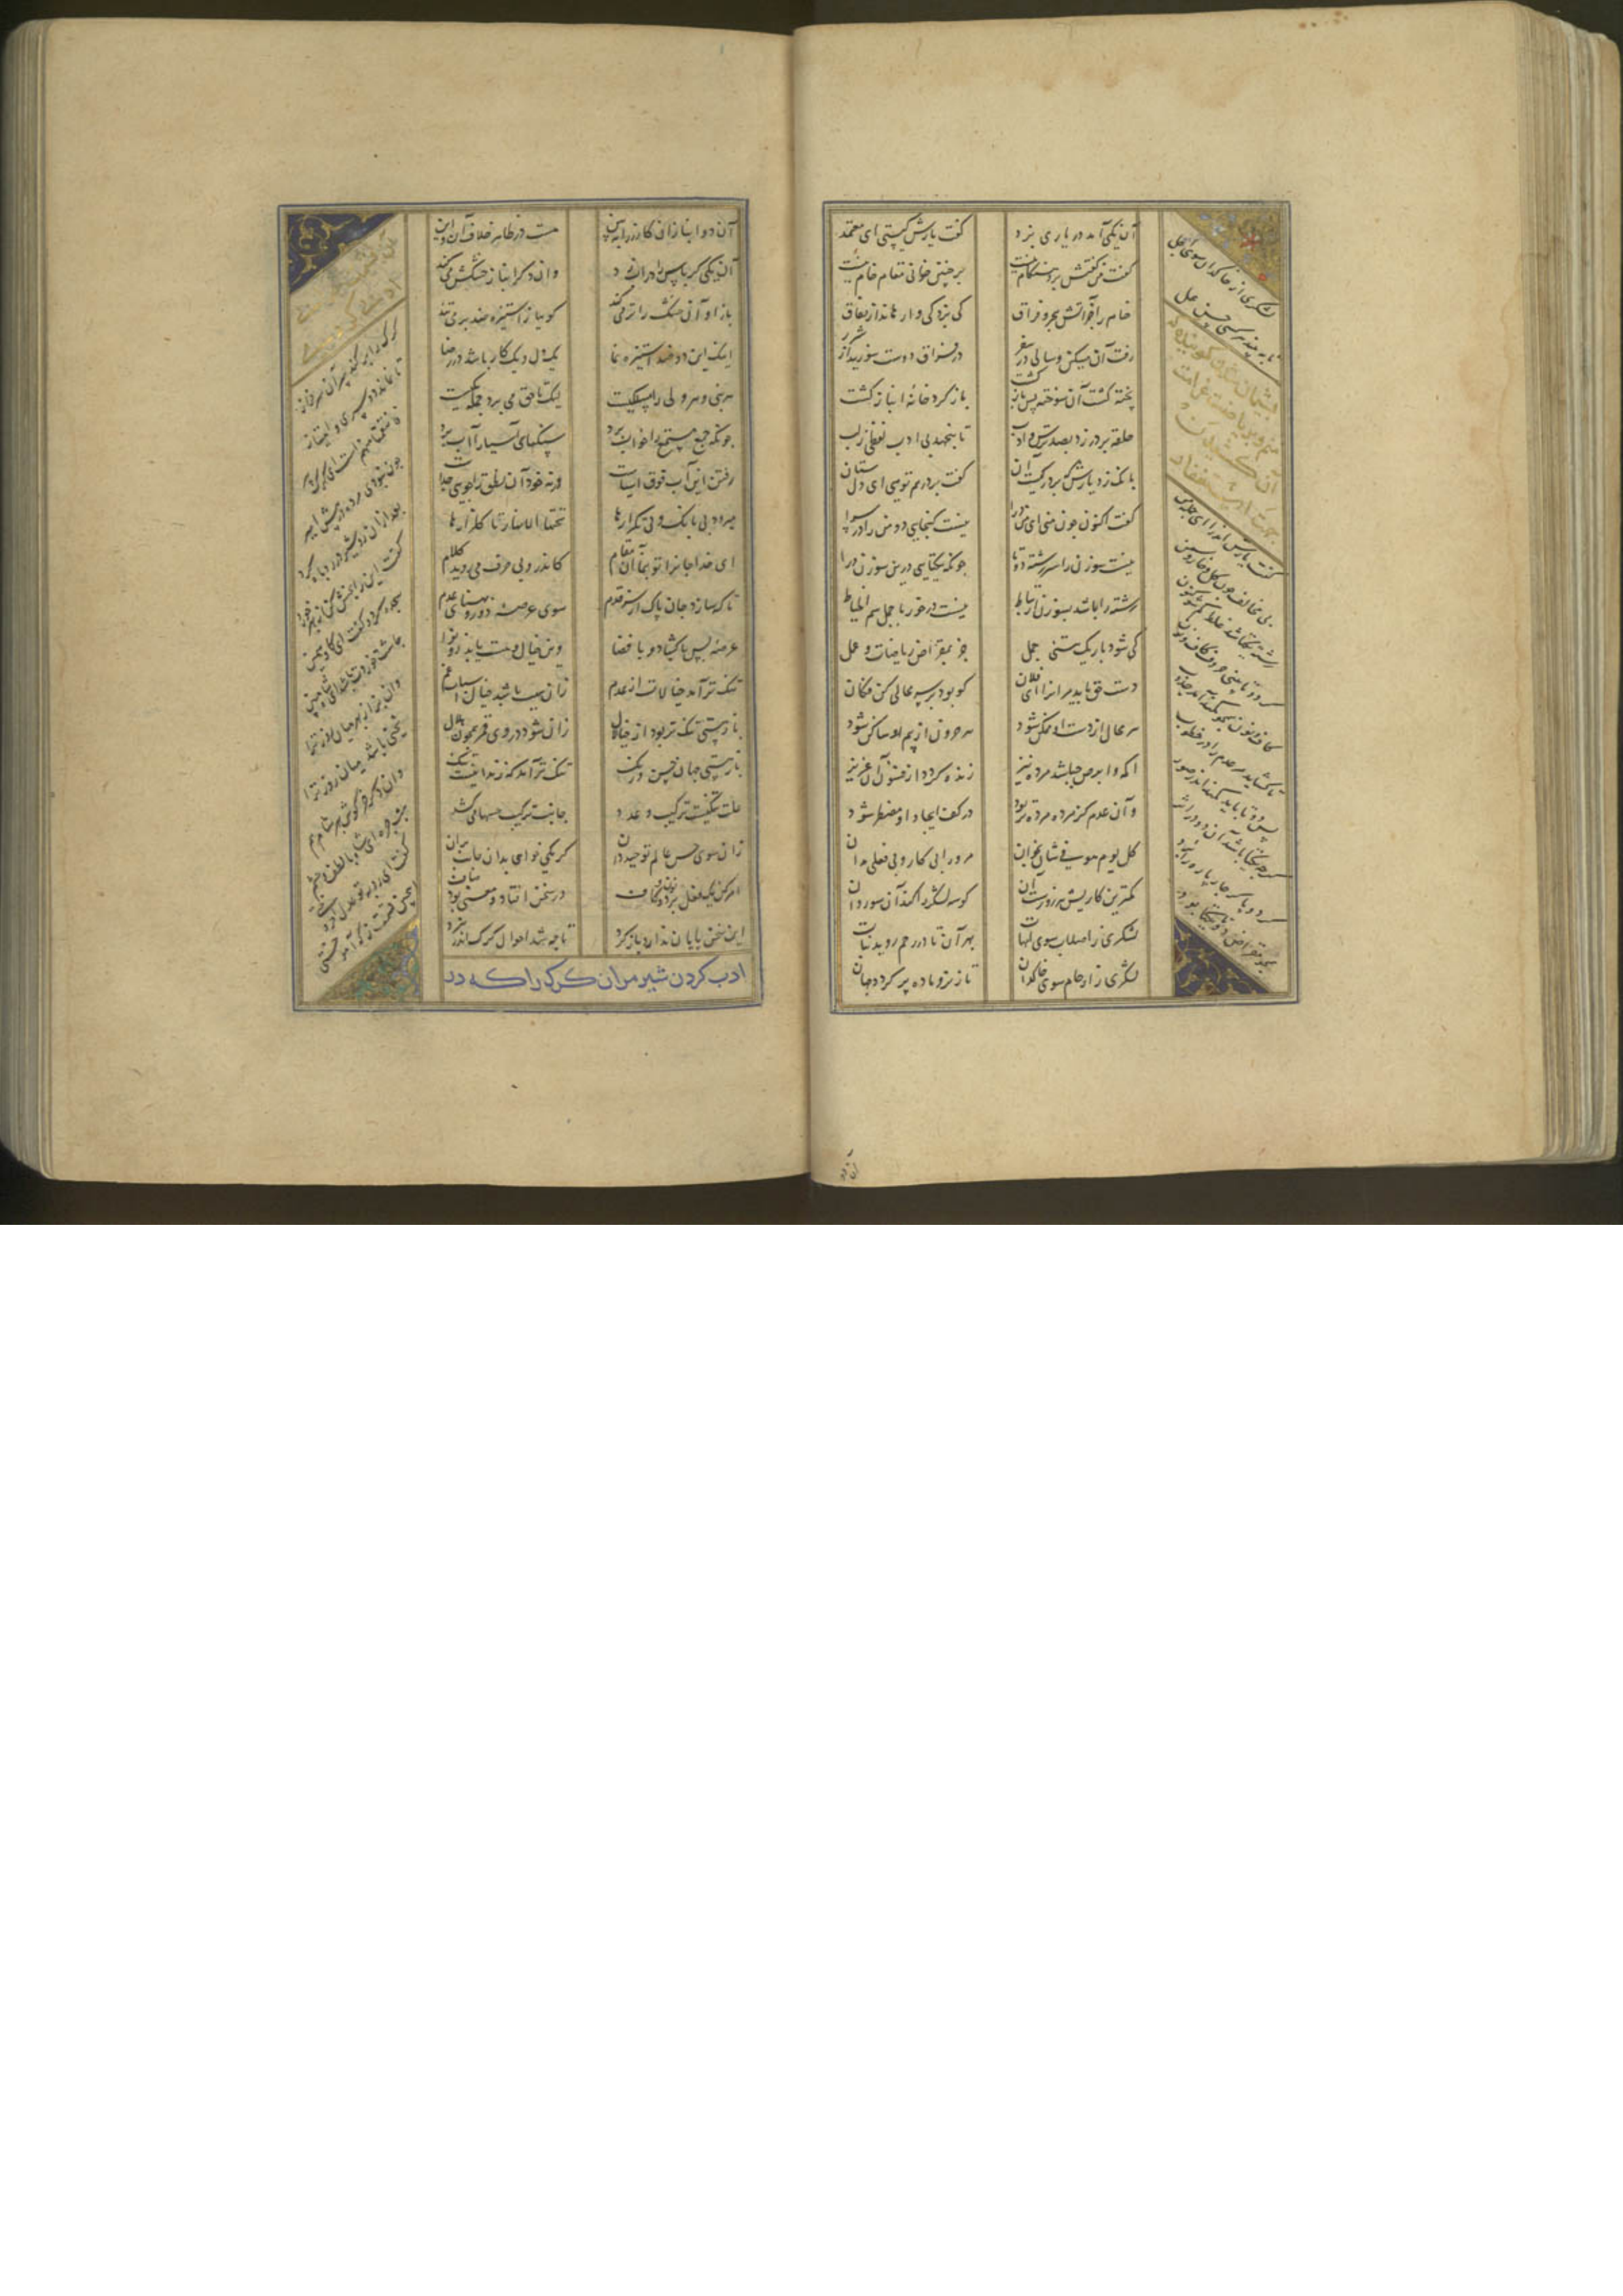 آن یکی آمد در یاری بزد
کفت یارش کیستی ای معتمد
کفت من کفتش برو هنکام نیست
بر چنین خوانی مقام خام نیست
خام را جز آتش هجر و فراق
کی پزد کی وا رهاند از نفاق
رفت آن مسکین و سالی در سفر
در فراق دوست سوزید از شرر
پخته کشت آن سوخته پس باز کشت
باز کرد خانه انباز کشت
حلقه بر در زد بصد ترس و ادب
تا بنجهد بی ادب لفظی ز لب
بانک زد یارش که بر در کیست آن
کفت بر در هم تویی ای دلستان
کفت اکنون چون منی ای من درا
نیست کنجایی دو من را در سرا
نیست سوزن را سر رشته دوتا
چونکه یکتایی درین سوزن درا
رشته را باشد بسوزن ارتباط
نیست در خور با جمل سم الخیاط
کی شود باریک هستی جمل
جز بمقراض ریاضات و عمل
دست حق باید مر انرا ای فلان
کو بود بر هر محالی کن فکان
هر محال از دست او ممکن شود
هر حرون از بیم او ساکن شود
اکمه و ابرص چباشد مرده نیز
زنده کردد از فسون آن عزیز
و آن عدم کز مرده مرده‌تر بود
در کف ایجاد او مضطر شود
کل یوم هو فی شان بخوان
مر ورا بی کار و بی فعلی مدان
کمترین کاریش هر روزست آن
کو سه لشکر را کند آن سو روان
لشکری ز اصلاب سوی امهات
بهر آن تا در رحم روید نبات
لشکری ز ارحام سوی خاکدان
تا ز نر و ماده پر کردد جهان
لشکری از خاکدان سوی اجل
تا ببیند هر کسی حسن عمل
کفت یارش اندر آ ای جمله من
نی مخالف چون کل و خار چمن
رشته یکتا شد غلط کم شو کنون
کر دوتا بینی حروف کاف و نون
کاف و نون همچون کمند آمد جذوب
تا کشاند مر عدم را در خطوب
پس دوتا باید کمند اندر صور
کرچه یکتا باشد آن دو در اثر
کر دو پا کر چار پا ره را برد
همچو مقراض دوتا یکتا برد
آن دو انبازان کازر را ببین
هست در ظاهر خلاف آن و این
آن یکی کرباس را در آب زد
وان دکر انباز خشکش می‌کند
باز او آن خشک را تر می‌کند
کوییا ز استیزه ضد بر می‌تند
لیک این دو ضد استیزه نما
یکدل و یک کار باشد در رضا
هر نبی و هر ولی را مسلکیست
لیک تا حق می‌برد جمله یکیست
چونکه جمع مستمع را خواب برد
سنکهای آسیا را آب برد
رفتن این آب فوق آسیاست
ای خدا جانرا تو بنما آن مقام
کاندرو بی حرف می‌روید کلام
تا که سازد جان پاک از سر قدم
سوی عرصه دور و پهنای عدم
عرصه بس با کشاد و با فضا
وین خیال و هست یابد زو نوا
تنک‌تر آمد خیالات از عدم
زان سبب باشد خیال اسباب غم
باز هستی تنک‌تر بود از خیال
زان شود در وی قمر همچون هلال
باز هستی جهان حس و رنک
تنک‌تر آمد که زندانیست تنک
علت تنکیست ترکیب و عدد
جانب ترکیب حسها می‌کشد
زان سوی حس عالم توحید دان
کر یکی خواهی بدان جانب بران
امر کن یک فعل بود و نون و کاف
در سخن افتاد و معنی بود صاف
این سخن پایان ندارد باز کرد
تا چه شد احوال کرک اندر نبرد
ادب کردن شیر مر آن کرک را که در
کرک را بر کند سر آن سرفراز
تا نماند دو سری و امتیاز
فانتقمنا منهم است ای کرک پیر
چون نبودی مرده در پیش امیر
بعد از آن رو شیر با روباه کرد
سجده کرد و کفت ای کاو سمین
چاشت خوردت باشد ای شاه مهین
وان بز از بهر میان روز را
یخنی باشد میان روز ترا
وان دکر خرکوش بهر شام هم
شب چره ای شاه با لطف و کرم
کفت ای روبه تو عدل افروختی
این چنین قسمت ز که آموختی